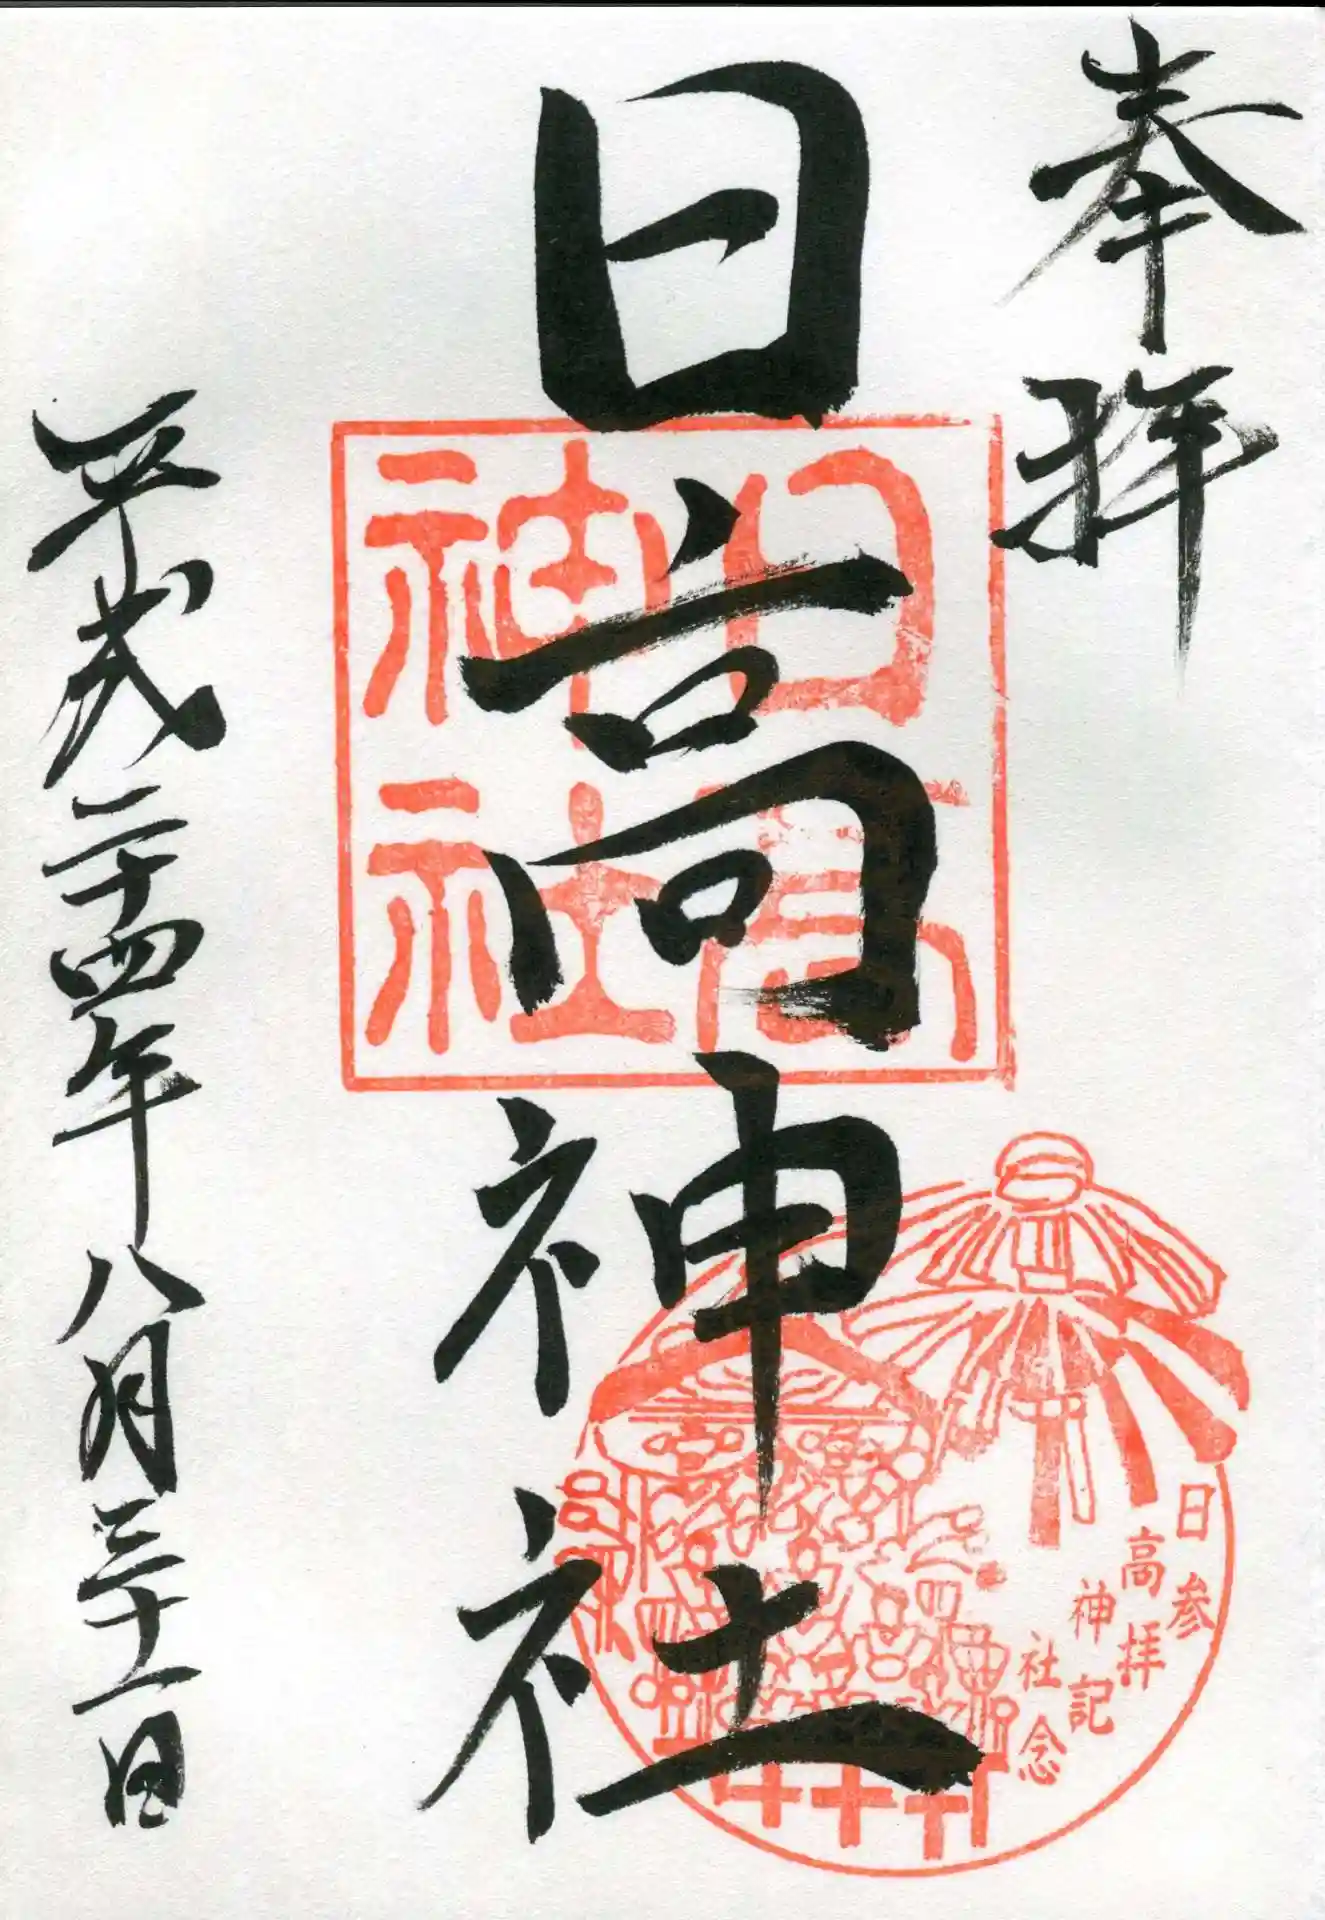 奉拝
日高神社
日高
神社
日高神社
参拝記念
平成二十四年八月三十一日